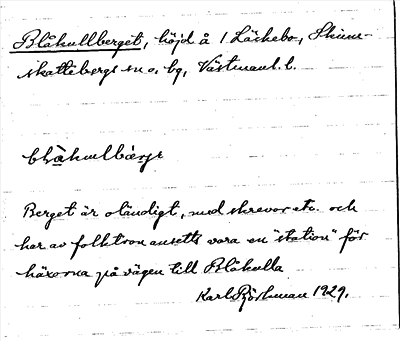 Blåkullberget, höjd å 1 Läckebo, Skinn-
skattebergs sn o. bg, Västmanl. l.
blåkullbärje
Berget är oländigt, med skrevor etc. och
har av folktron ansetts vara en "station" för
häxorna på vägen till Blåkulla
Karl Björkman 1929.